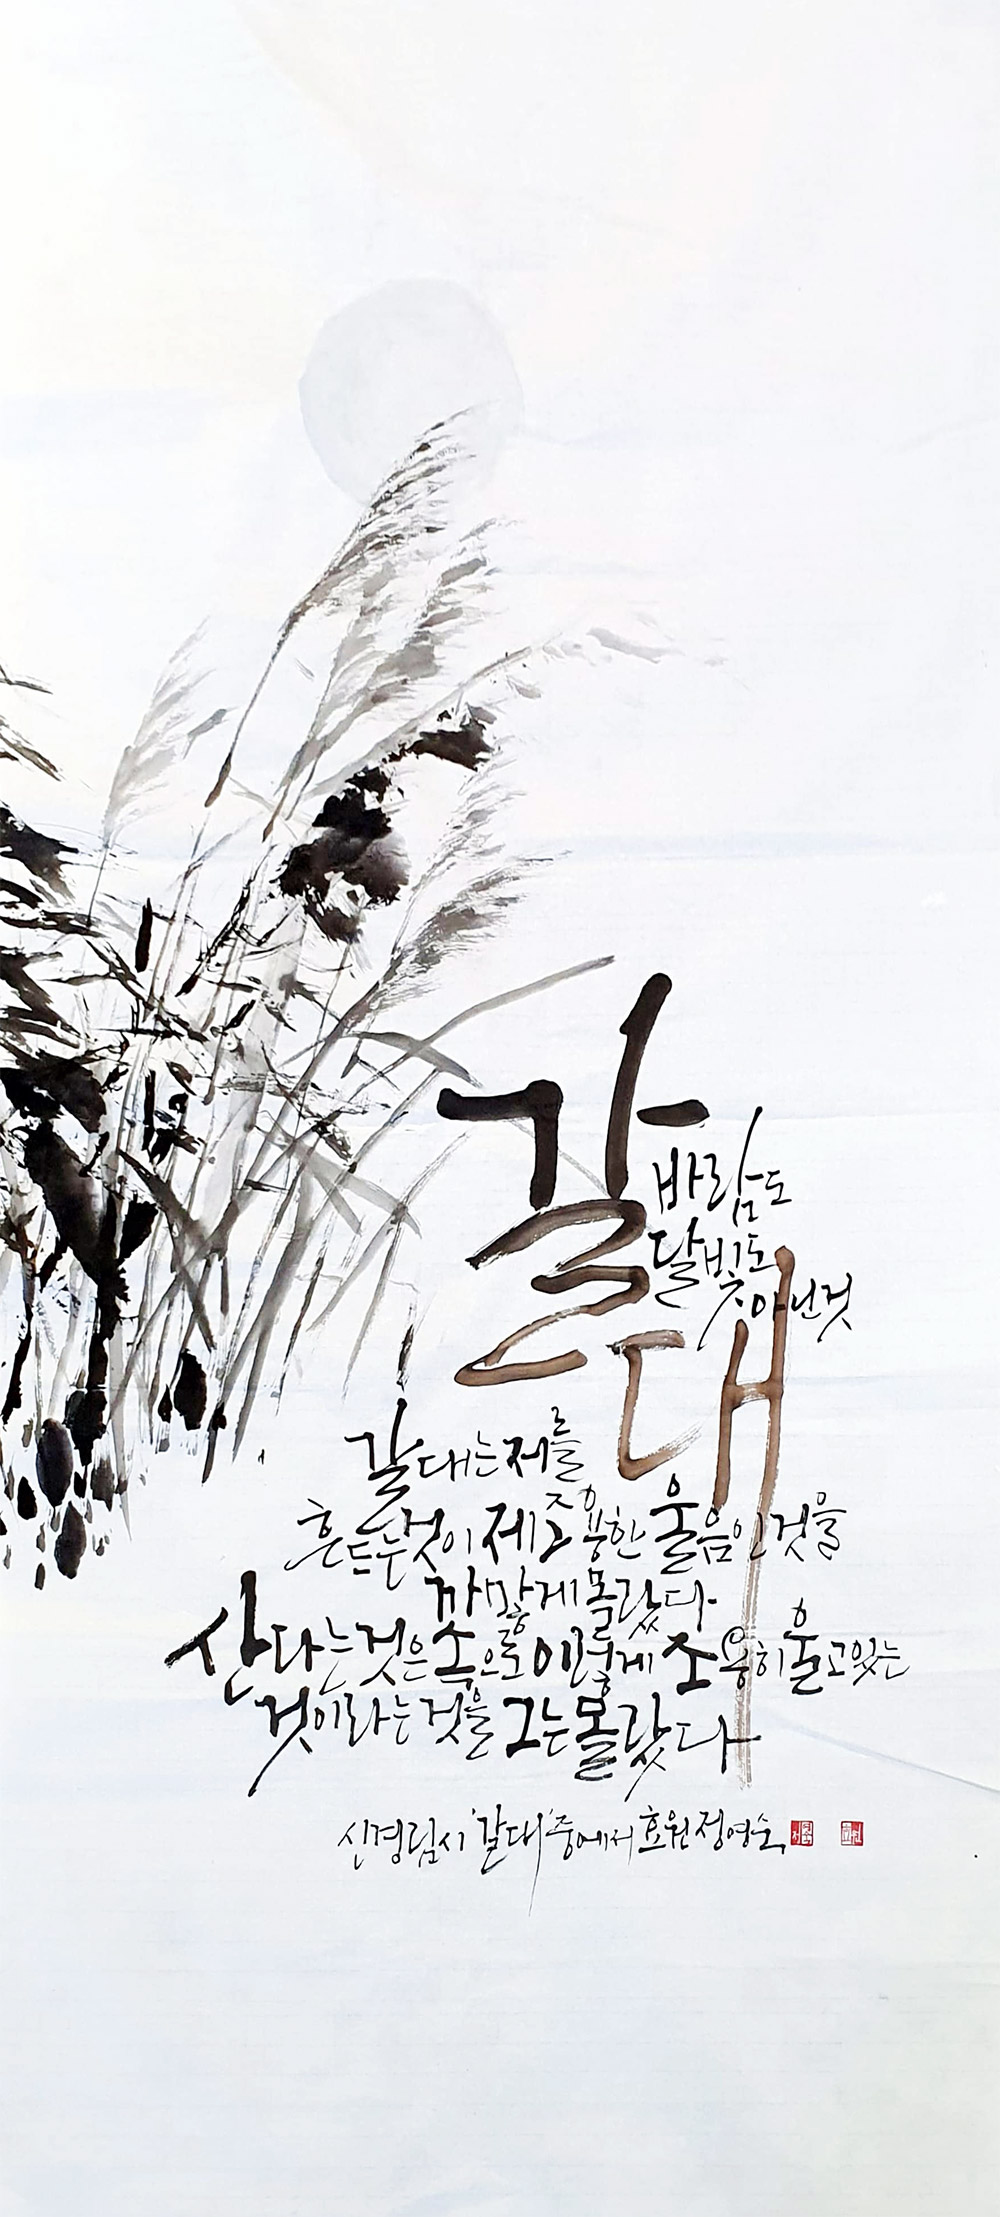 갈대
바람도
달빛도
아닌것
갈대는 저를
흔드는것이 제조용한 울음인것을
까맣게 몰랐다
산다는것은 속으로 이렇게 조용히 울고있는
것이라는것을 그는 몰랐다
신경림시 '갈대' 중에서 효원 정영숙